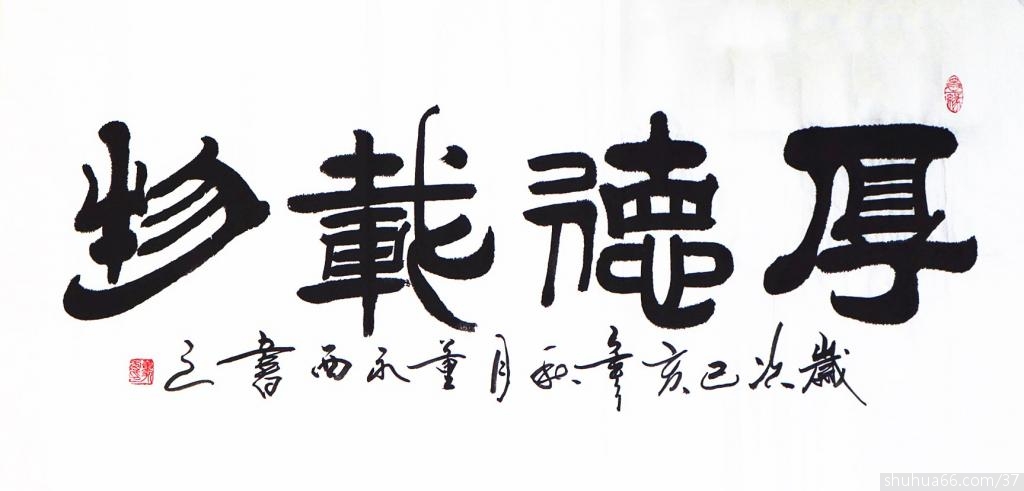 厚德載物
歲次己亥年秋月董永西書之
shuhua66.com/37